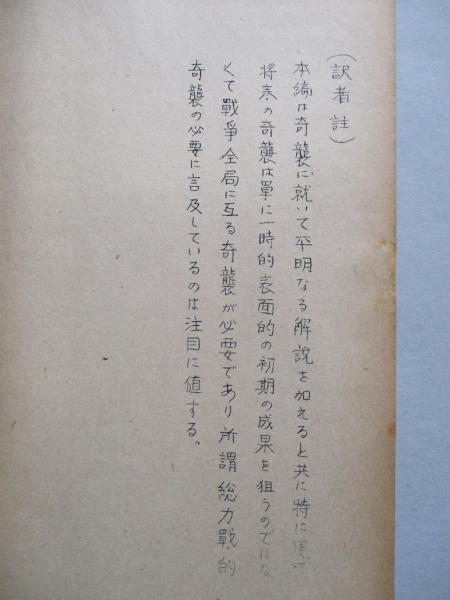 (訳者註)
本編は奇襲に就いて平明なる解説を加えると共に特に
将来の奇襲は單に一時的表面的の初期の成果を狙うのではな
くて戰爭全局に亙る奇襲が必要であり所謂総力戰的
奇襲の必要に言及しているのは注目に値する。